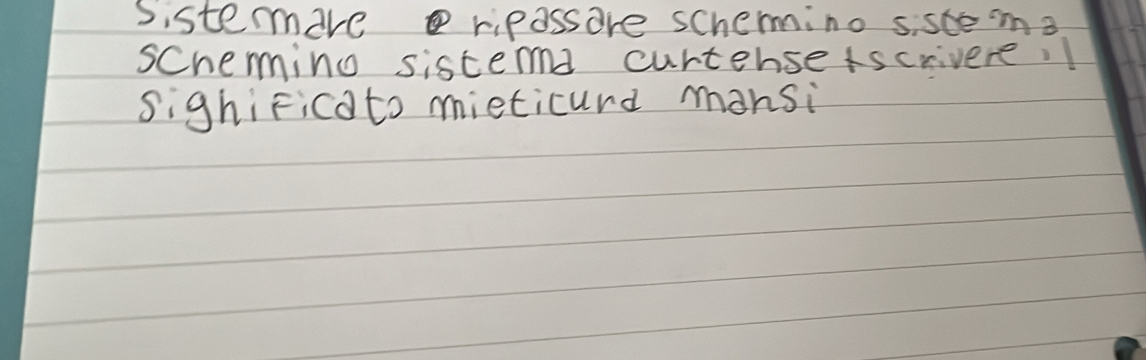 sistemare e ripassare schemino sistema
schemino sistema curtense + scrivere il
significato mieticurd mansi